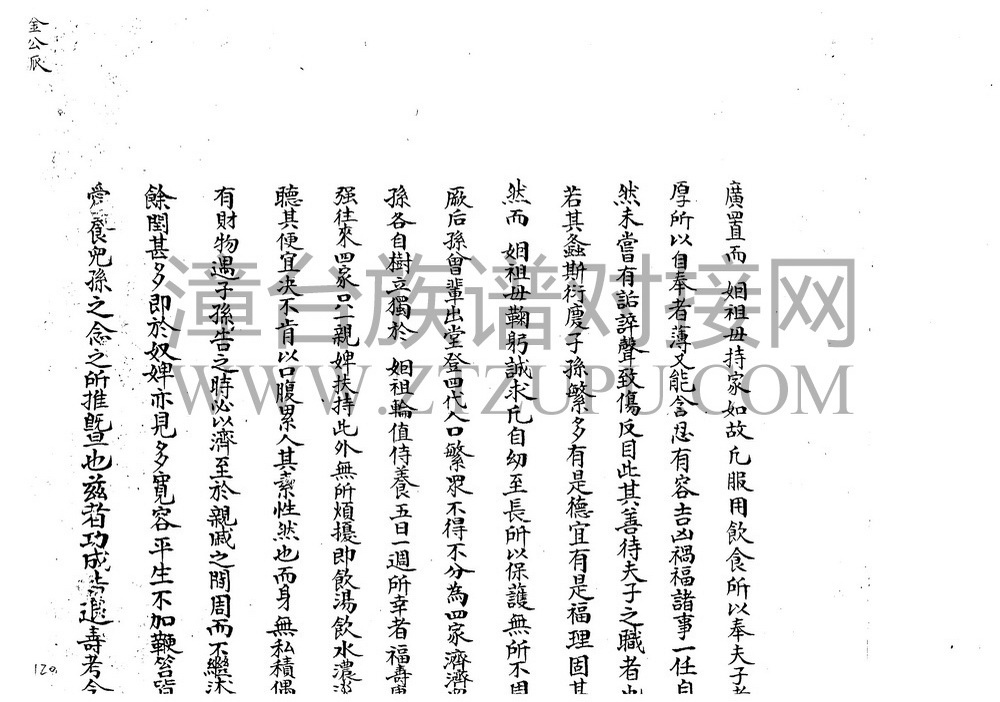 金公辰
廣置而 姻祖毋持家如故凡服用飲食所以奉夫子者
厚所以自奉者薄又能含忍有容吉凶禍福諸事一任自
然未嘗有詬誶聲致傷反目此其善待夫子之職者也
若其螽斯衍慶子孫繁多有是德宜有是福理固其
然而 姻祖毋鞠躬誠求凡自幼至長所以保護無所不周
厥后孫曾輩出堂登四代人口繁眾不得不分為四家濟濟
孫各自樹立獨於 姻祖輪值侍養五日一週所幸者福壽康
强往來四家只一親婢扶持此外無所煩擾即飲湯飲水濃淡
聽其便宜决不肯以口腹累人其素性然也而身無私積偶
有財物遇子孫告之時必以濟至於親戚之闊周而不繼沐
餘閏甚多即於奴婢亦見多寬容平生不加鞭笞皆
愛養兒孫之念之所推暨也兹者功成 退壽考今
120
漳台族谱对接网
WWW.ZTZUPU.COM